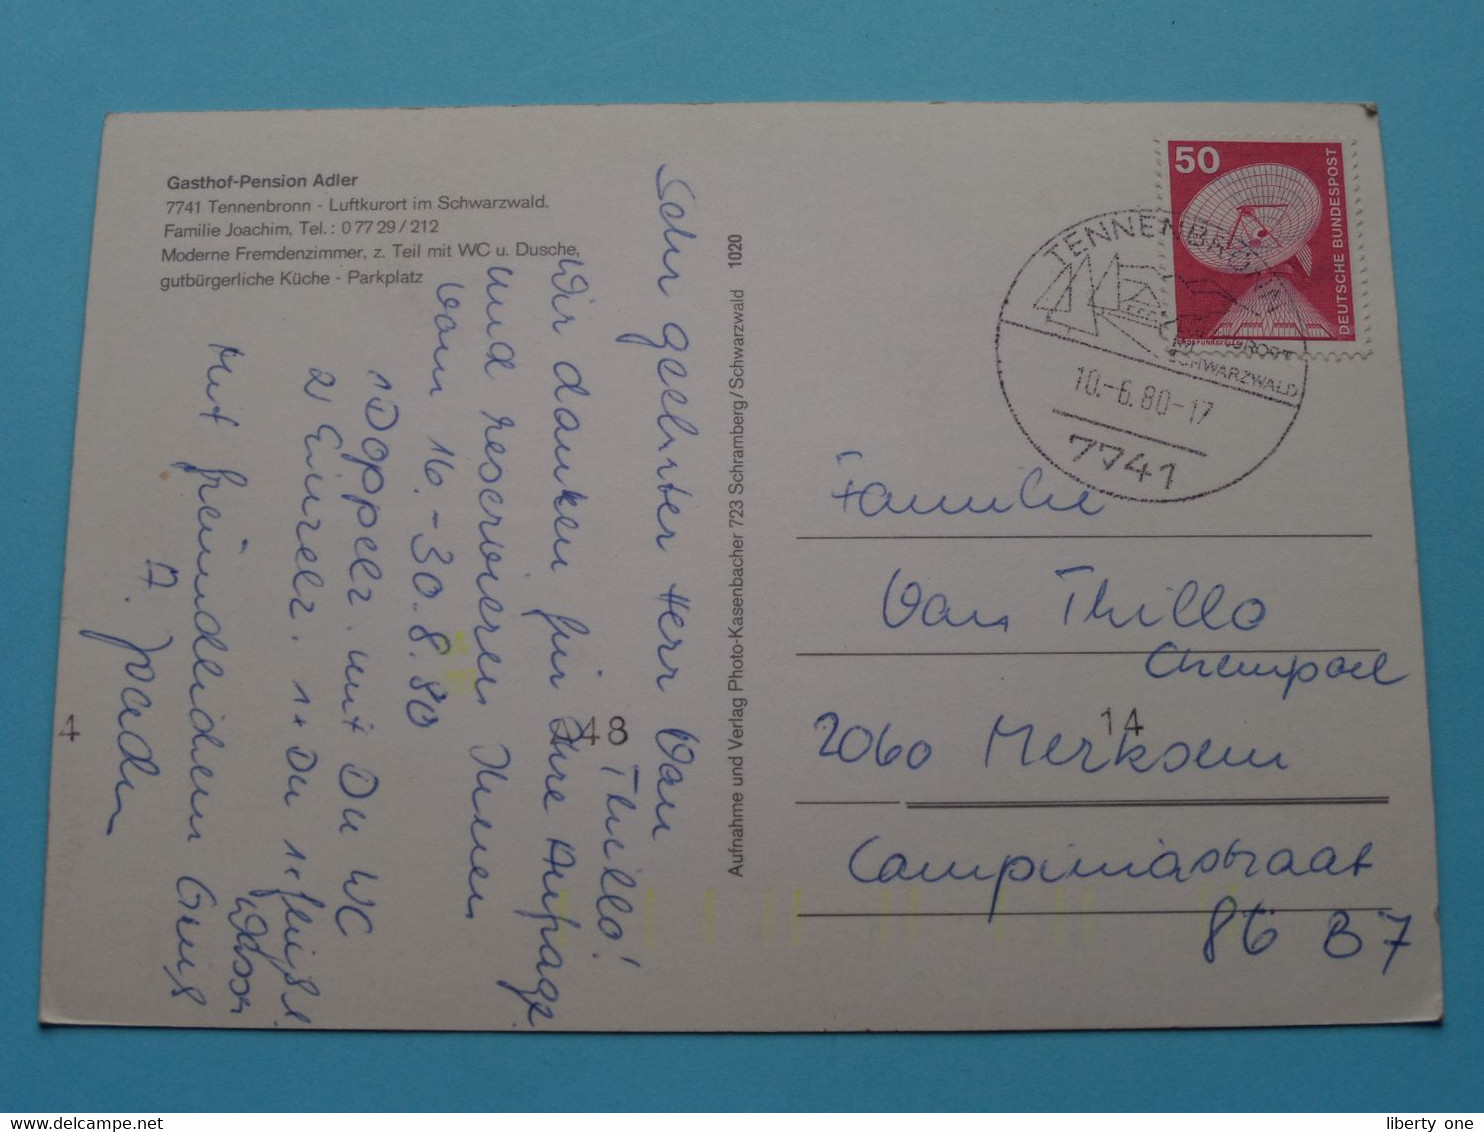 Gasthof-Pension Adler
7741 Tennenbronn - Luftkurort im Schwarzwald.
Familie Joachim, Tel.: 0 77 29 / 212
Moderne Fremdenzimmer, z. Teil mit WC u. Dusche,
gutbürgerliche Küche - Parkplatz
Sehr geehrter Herr Van
Thillo!
Wir danken für Ihre Anfrage
und reservieren Ihnen
vom 16.-30.8.80
1 Doppelz. mit Du WC
2 Einzelz. 1x Du 1x fließ
Wasser
Mit freundlichem Gruß
Joachim
4
48
14
Aufnahme und Verlag Photo-Kasenbacher 723 Schramberg/Schwarzwald 1020
50
DEUTSCHE BUNDESPOST
TENNENBRONN
SCHWARZWALD
10.-6.80-17
7741
Familie
Van Thillo
2060 Merksem
Campiniastraat
86 B7
liberty one